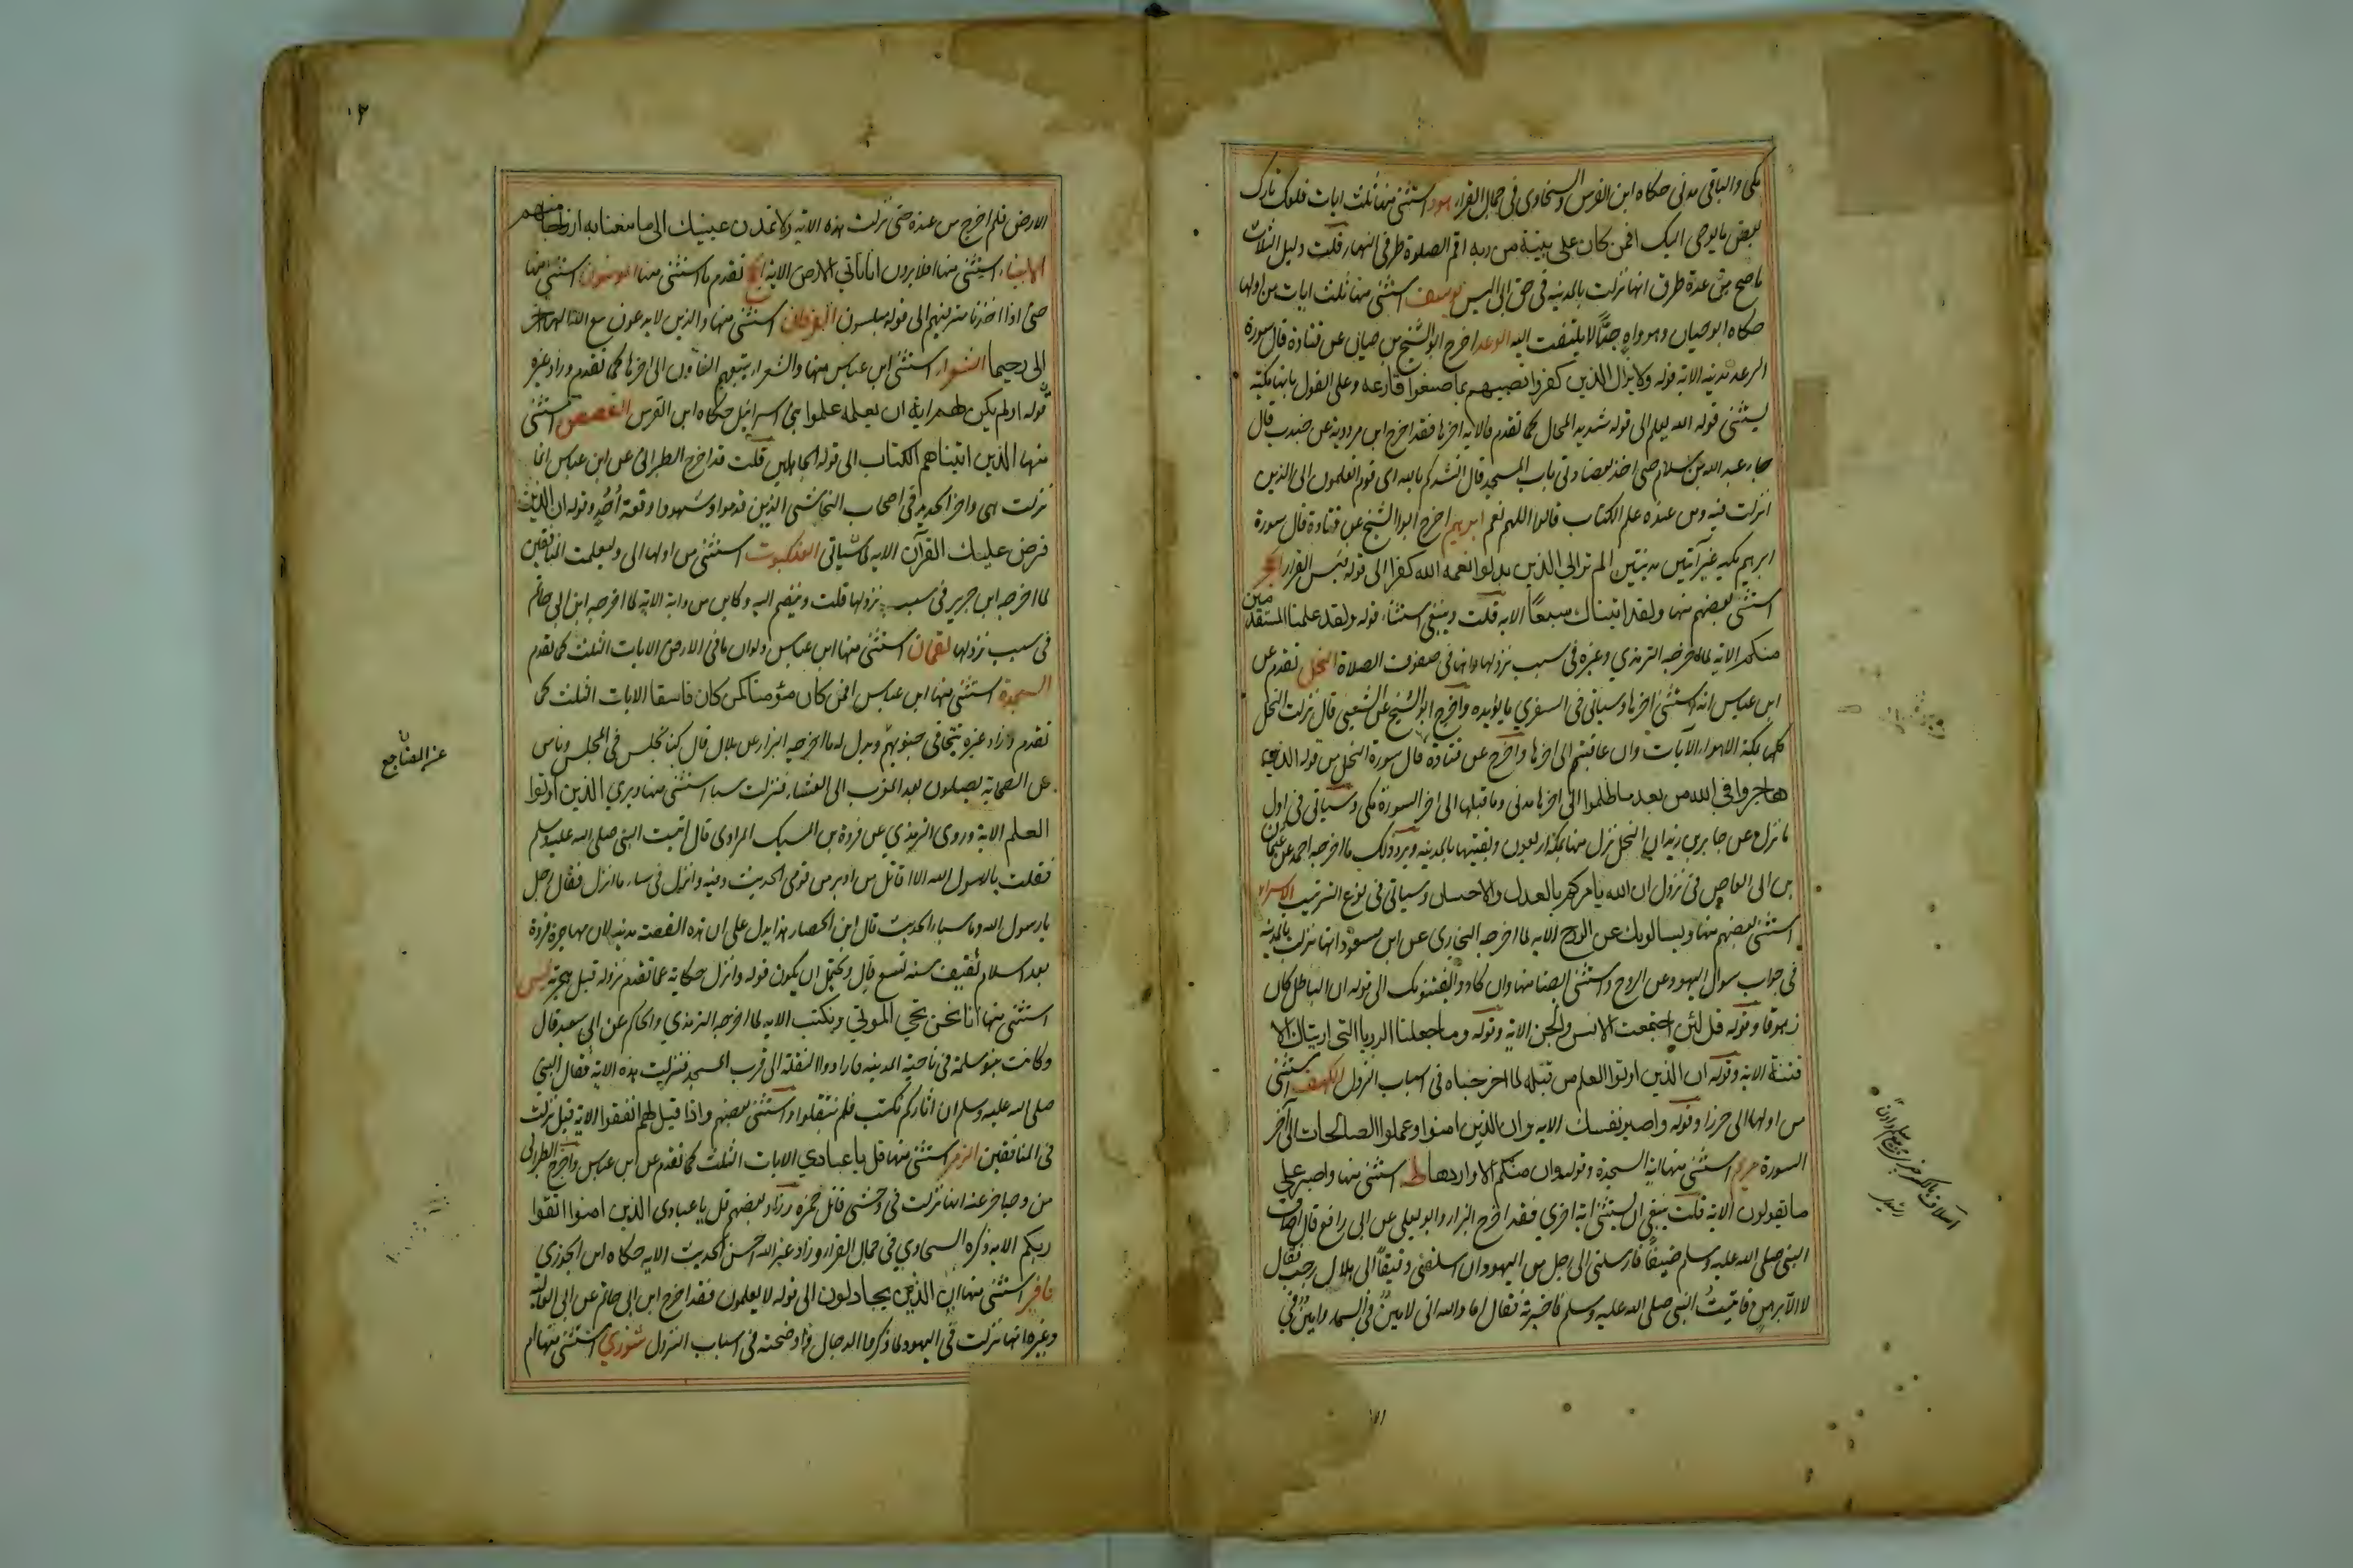 مكى والباقى مدنى حكاه ابن الفرس والسخاوى فى جمال القراء هود استثنى منها ثلث ايات فلعلك تارك
بعض ما يوحى اليك افمن كان على بينة من ربه اقم الصلوة طرفى النهار قلت دليل الثلاث
ما صح من عدة طرق انها نزلت بالمدينه فى حق ابى اليسر يوسف استثنى منها ثلث ايات من اولها
حكاه ابو حيان وهو واه جدًّا لا يلتفت اليه الرعد اخرج ابو الشيخ بن حيان عن قتادة قال سورة
الرعد مدنيه الا اية قوله ولا يزال الذين كفروا تصيبهم بما صنعوا قارعه وعلى القول بانها مكية
يستثنى قوله الله يعلم الى قوله شديد المحال كما تقدم والاية اخرها فقد اخرج ابن مردوية عن جندب قال
جاء عبد الله بن سلام حتى اخذ بعضادتى باب المسجد قال انشدكم بالله اى قوم اتعلمون انى الذين
انزلت فيه ومن عنده علم الكتاب قالوا اللهم نعم ابرهيم اخرج ابوا الشيخ عن قتادة قال سورة
ابرهيم مكيه غير آيتين مدنيتين الم تر الى الذين بدلوا نعمة الله كفرا الى قوله فبئس القرار الحجر
استثنى بعضهم منها ولقد اتيناك سبعًا الايه قلت وينبغى استثناء قوله ولقد علمنا المستقدمين
منكم الاية لما اخرجه الترمذي وغيره فى سبب نزولها وانها فى صفوف الصلاة النحل تقدم عن
ابن عباس انه استثنى اخرها وسياتى فى السفري ما يؤيده واخرج ابو الشيخ عن الشعبى قال نزلت النحل
كلها بمكة الا هؤلاء الآيات وان عاقبتم الى اخرها واخرج عن قتادة قال سورة النحل من قوله الذين
هاجروا فى الله من بعد ما ظلموا الى اخرها مدنى وما قبلها الى اخر السورة مكى وسياتى فى اول
ما نزل عن جابر بن زيد ان النحل نزل منها بمكة اربعون وبقيتها بالمدينه ويرد ذلك ما اخرجه احمد عن عثمان
بن ابى العاص فى نزول ان الله يامركم بالعدل والاحسان وسياتى فى نوع الترتيب الاسراء
استثنى بعضهم منها ويسالونك عن الروح الايه لما اخرجه البخارى عن ابن مسعود انها نزلت بالمدينه
فى جواب سوال اليهود عن الروح واستثنى ايضا منها وان كادوا ليفتنونك الى قوله ان الباطل كان
زهوقا وقوله قل لئن اجتمعت الانس والجن الاية وقوله وما جعلنا الرويا التى اريناك الا
فتنة الاية وقوله ان الذين اوتوا العلم من قبله لما اخرجناه فى اسباب النزول الكهف استثنى
من اولها الى جرزا وقوله واصبر نفسك الايه وان الذين امنوا وعملوا الصالحات الى آخر
السورة مريم استثنى منها اية السجدة وقوله وان منكم الا واردها طه استثنى منها واصبر على
ما يقولون الاية قلت ينبغى ان يستثنى اية اخري فقد اخرج البزار وابو يعلى عن ابى رافع قال اضاف
النبى صلى الله عليه وسلم ضيفًا فارسلنى الى رجل من اليهود ان اسلفنى دقيقًا الى هلال رجب فقال
لا الا برهن فاتيت النبى صلى الله عليه وسلم فاخبرته فقال اما والله انى لامين فى السماء وامين فى
الارض فلم اخرج من عنده حتى نزلت هذه الاية ولا تمدن عينيك الى ما متعنا به ازواجا منهم
الانبياء استثنى منها افلا يرون انا ناتي الارض الاية الحج تقدم ما استثنى منها المومنون استثنى منها
حتى اذا اخذنا مترفيهم الى قوله مبلسون الفرقان استثنى منها والذين لا يدعون مع الله الها اخر
الى رحيما الشعراء استثنى ابن عباس منها والشعراء يتبعهم الغاوون الى اخرها كما تقدم وزاد غيره
قوله اولم يكن لهم اية ان يعلمه علموا بنى اسرائيل حكاه ابن الفرس القصص استثنى
منها الذين اتيناهم الكتاب الى قوله الجاهلين قلت قد اخرج الطبرانى عن ابن عباس انها
نزلت هى واخر الحديد فى اصحاب النجاشى الذين قدموا وشهدوا وقعة أحُدٍ وقوله ان الذى
فرض عليك القرآن الاية لما سياتى العنكبوت استثنى من اولها الى وليعلمن المنافقين
لما اخرجه ابن جرير فى سبب نزولها قلت ويضم اليه وكاين من دابة الاية لما اخرجه ابن ابى حاتم
فى سبب نزولها لقمان استثنى منها ابن عباس ولو ان ما فى الارض الايات الثلث كما تقدم
السجدة استثنى منها ابن عباس افمن كان مؤمنا كمن كان فاسقا الايات الثلث كما
تقدم وزاد غيره تتجافى جنوبهم ويدل له ما اخرجه البزار عن بلال قال كنا نجلس فى المجلس وناس
عن الصحابة يصلون بعد المغرب الى العشاء فنزلت سبا استثنى منها ويري الذين أوتوا
العلم الاية وروى الترمذي عن فروة بن المسيك المرادى قال اتيت النبى صلى الله عليه وسلم
فقلت يا رسول الله الا اقاتل من ادبر من قومى الحديث وفيه وانزل فى سباء ما انزل فقال رجل
يا رسول الله وما سباء الحديث قال ابن الحصار هذا يدل على ان هذه القصة مدنيه لان مهاجرة فروة
بعد اسلام ثقيف سنه تسع قال ويحتمل ان يكون قوله وانزل حكاية عما تقدم نزوله قبل هجرته يس
استثنى منها انا نحن نحي الموتي ونكتب الاية لما اخرجه الترمذي والحاكم عن ابى سعيد قال
وكانت بنو سلمة فى ناحية المدينه فارادوا النقلة الى قرب المسجد فنزلت هذه الاية فقال النبى
صلى الله عليه وسلم ان اثاركم تكتب فلم ينتقلوا واستثنى بعضهم واذا قيل لهم انفقوا الاية قيل نزلت
فى المنافقين الزمر استثنى منها قل يا عبادي الايات الثلث كما تقدم عن ابن عباس واخرج الطبرانى
من وجه اخر عنه انها نزلت فى وحشى قاتل حمزه وزاد بعضهم قل يا عبادى الذين امنوا اتقوا
ربكم الاية ذكره السخاوي فى جمال القراء وزاد غيره الله احسن الحديث الاية حكاه ابن الجوزي
غافر استثنى منها ان الذين يجادلون الى قوله لا يعلمون فقد اخرج ابن ابى حاتم عن ابى العالية
وغيره انها نزلت فى اليهود لما ذكروا الدجال واوضحته فى اسباب النزول شورى استثنى منها ام
عن المضاجع